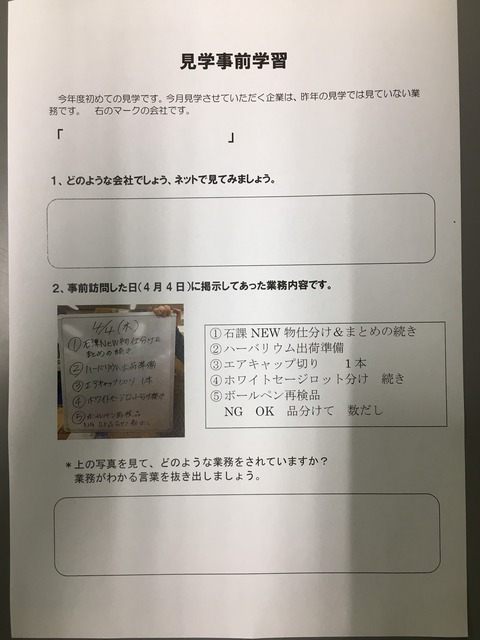 見学事前学習
今年度初めての見学です。今月見学させていただく企業は、昨年の見学では見ていない業
務です。 右のマークの会社です。
「 」
１、どのような会社でしょう、ネットで見てみましょう。
２、事前訪問した日(４月４日)に掲示してあった業務内容です。
4/4(水)
①石課NEW物仕分け&
まとめの続き
②ハーバリウム出荷準備
③エアキャップ切り 1本
④ホワイトセージロット分け 続き
⑤ボールペン再検品
NG OK 品分けて 数だし
①石課 NEW 物仕分け＆まとめの続き
②ハーバリウム出荷準備
③エアキャップ切り １本
④ホワイトセージロット分け 続き
⑤ボールペン再検品
NG OK 品分けて 数だし
＊上の写真を見て、どのような業務をされていますか？
業務がわかる言葉を抜き出しましょう。